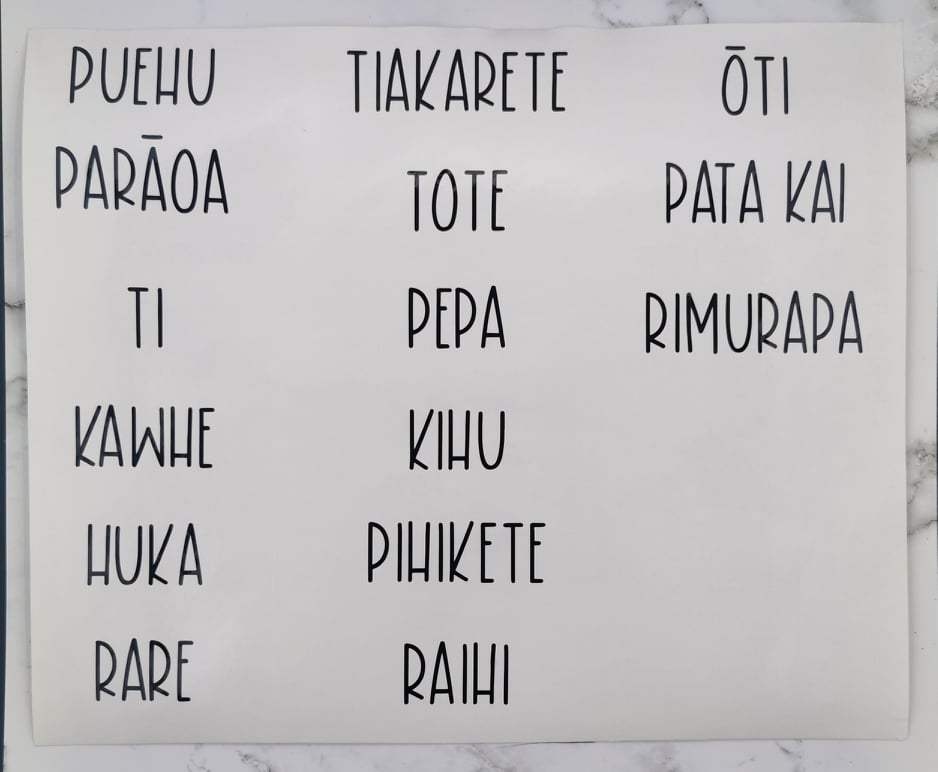 PUEHU
PARĀOA
TI
KAWHE
HUKA
RARE
TIAKARETE
TOTE
PEPA
KIHU
PIHIKETE
RAIHI
ŌTI
PATA KAI
RIMURAPA